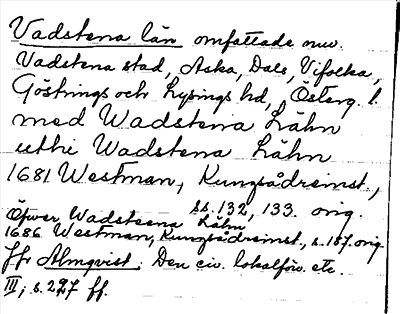 Vadstena län omfattade nuv.
Vadstena stad, Aska, Dals, Vifolka,
Göstrings och Lysings hd, Österg. l.
med Wadstena Lähn
uthi Wadstena Lähn
1681 Westman, Kungsådreinst.,
ss. 132, 133. orig.
Öfwer Wadsteena Lähn
1686 Westman, Kungsådreinst., s. 187. orig.
Jfr Almqvist: Den civ. lokalförv. etc.
III, s. 227 ff.